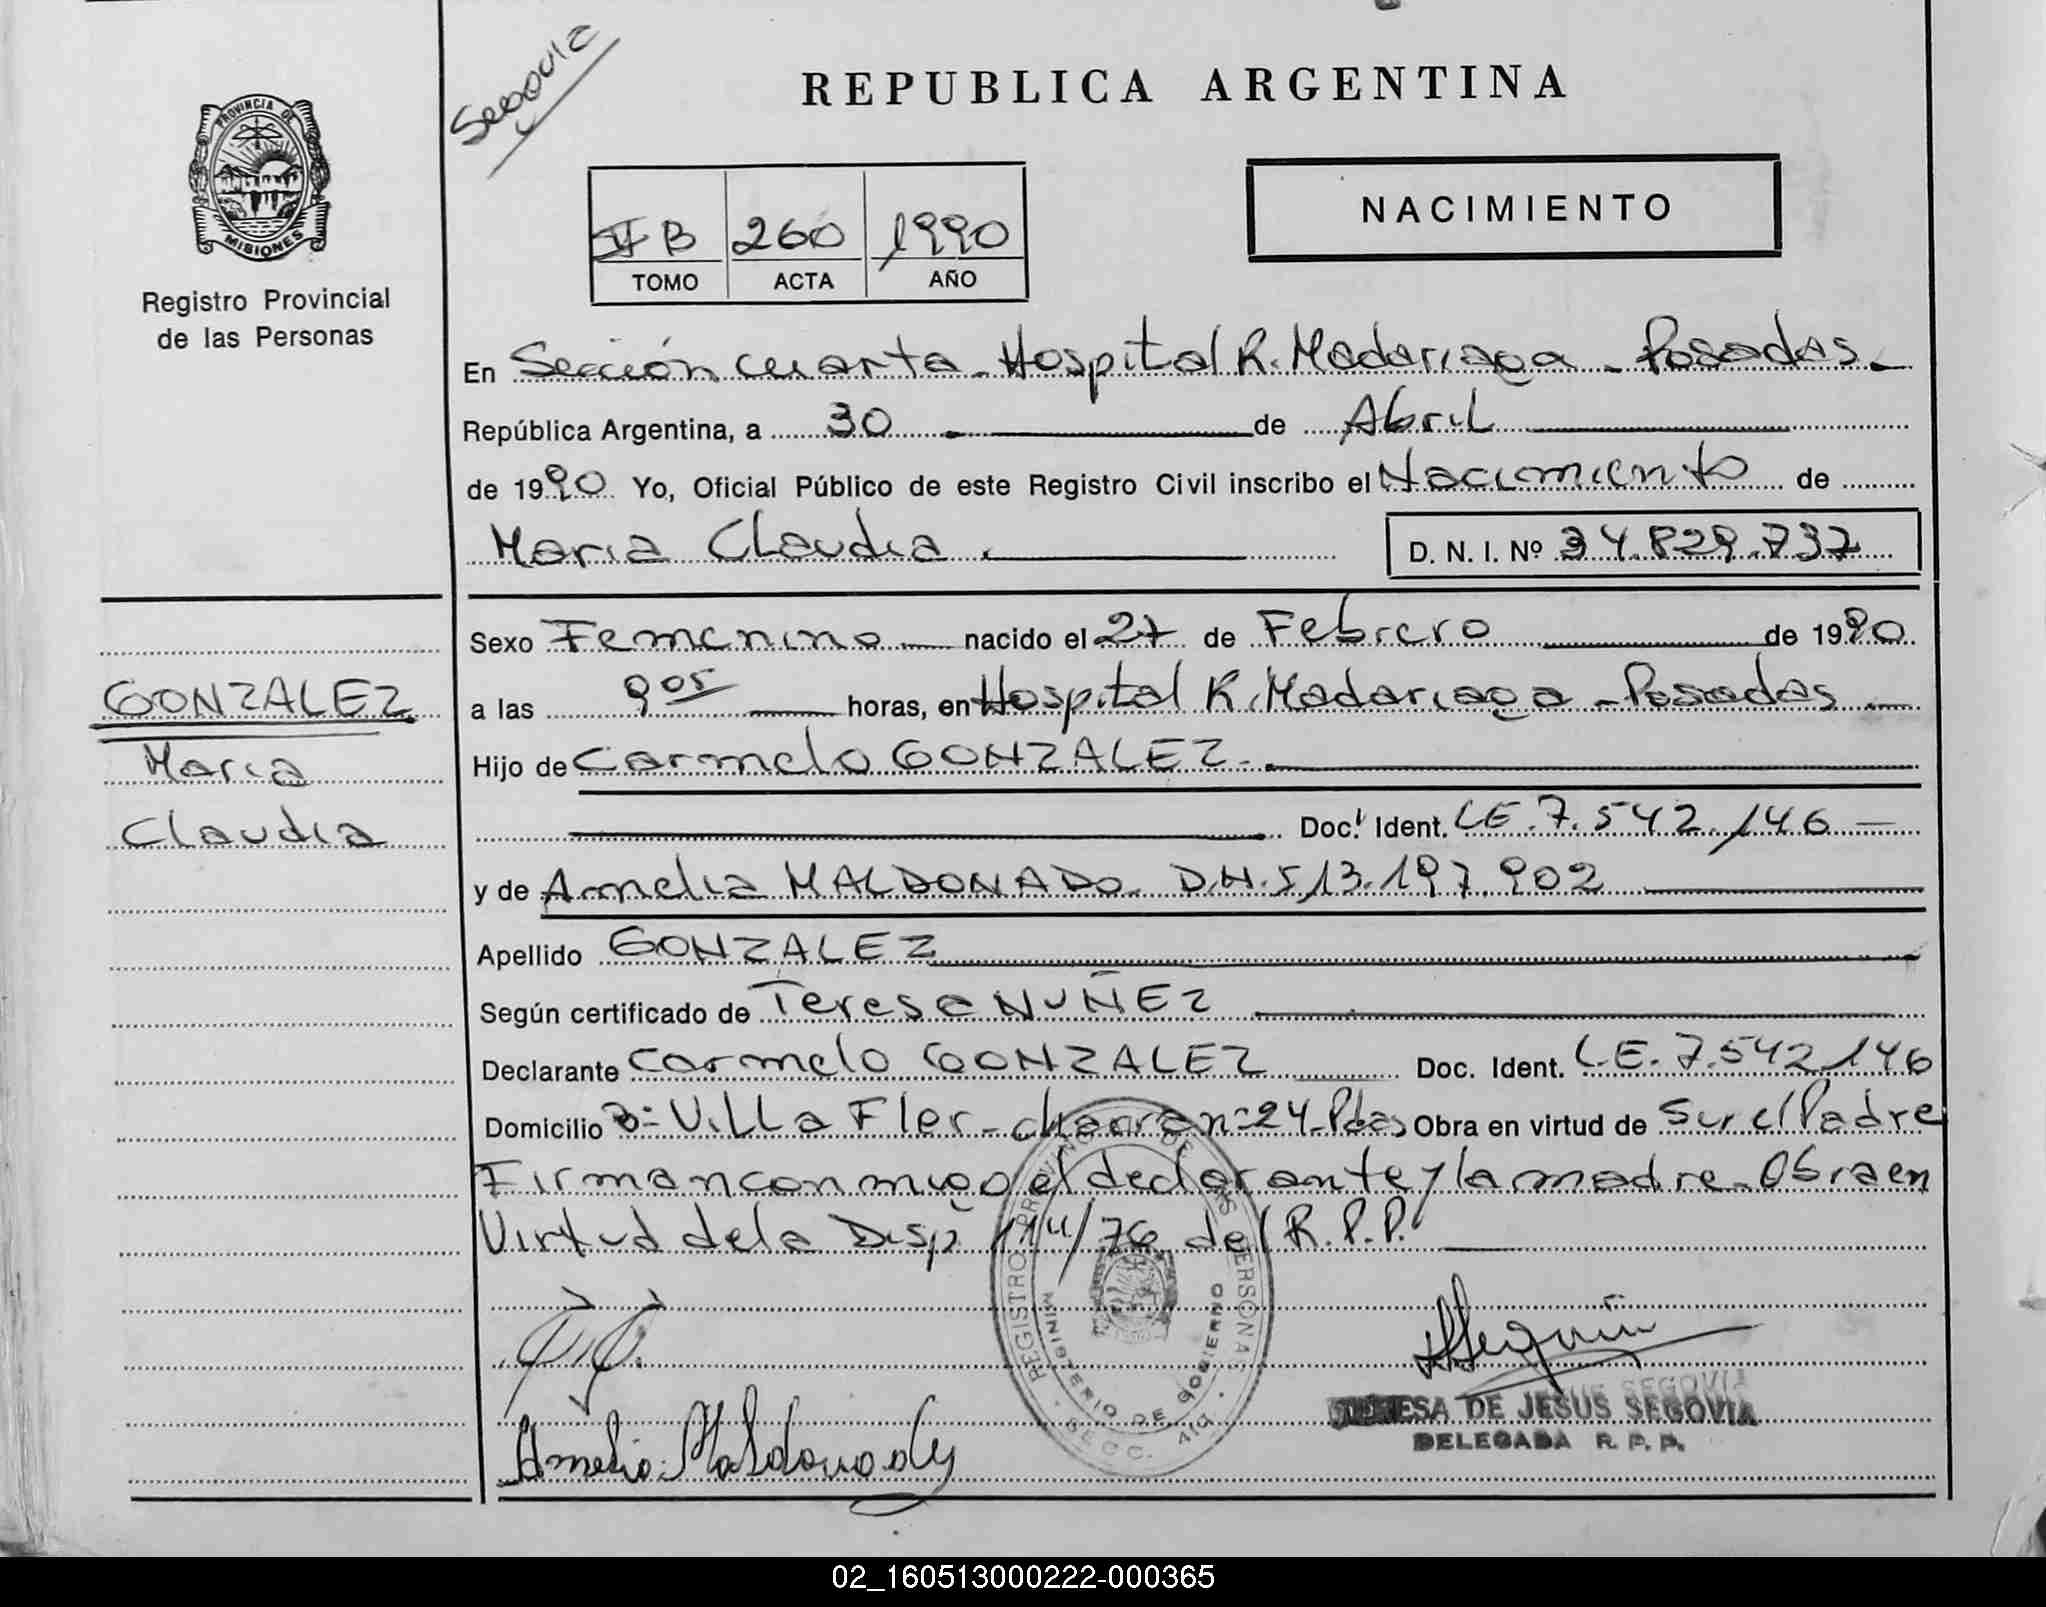 PROVINCIA DE
MISIONES
Registro Provincial
de las Personas
GONZALEZ
Maria
Claudia
Segovia
REPUBLICA ARGENTINA
NACIMIENTO
II B 260 1990
TOMO ACTA AÑO
En Sección cuarta - Hospital R. Madariaga - Posadas -
República Argentina, a 30 de Abril
de 1990 Yo, Oficial Público de este Registro Civil inscribo el Nacimiento de
Maria Claudia. D. N. I. Nº 34.829.737
Sexo Femenino nacido el 27 de Febrero de 1990
a las 9 05 horas, en Hospital R. Madariaga - Posadas
Hijo de Carmelo GONZALEZ -
Doc. Ident. LE. 7.542.146 -
y de Amelia MALDONADO D.N.I 13.197.902
Apellido GONZALEZ
Según certificado de Teresa NUÑEZ
Declarante Carmelo GONZALEZ Doc. Ident. L.E. 7.542.146
Domicilio Bº Villa Flor - nº 24 - Pdas Obra en virtud de Ser el Padre
Firman conmigo el declarante y la madre - Obra en
Virtud de la Disp 114/76 del R.P.P.
REGISTRO PROVINCIAL DE LAS PERSONAS
MINISTERIO DE GOBIERNO
SECC. 4ta.
Amelia Maldonado
TERESA DE JESUS SEGOVIA
DELEGADA R. P. P.
02_160513000222-000365